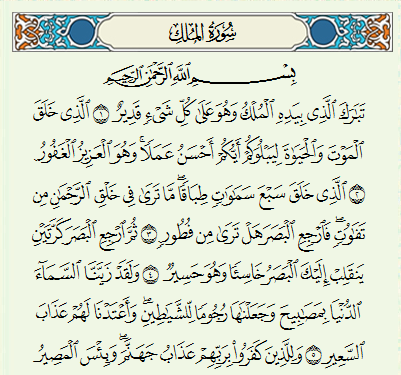 سُورَةُ المُلْكِ
بِسْمِ ٱللَّهِ ٱلرَّحْمَٰنِ ٱلرَّحِيمِ
تَبَٰرَكَ ٱلَّذِى بِيَدِهِ ٱلْمُلْكُ وَهُوَ عَلَىٰ كُلِّ شَىْءٍ قَدِيرٌ ۝١ ٱلَّذِى خَلَقَ
ٱلْمَوْتَ وَٱلْحَيَوٰةَ لِيَبْلُوَكُمْ أَيُّكُمْ أَحْسَنُ عَمَلًا ۚ وَهُوَ ٱلْعَزِيزُ ٱلْغَفُورُ
۝٢ ٱلَّذِى خَلَقَ سَبْعَ سَمَٰوَٰتٍ طِبَاقًا ۖ مَّا تَرَىٰ فِى خَلْقِ ٱلرَّحْمَٰنِ مِن
تَفَٰوُتٍ ۖ فَٱرْجِعِ ٱلْبَصَرَ هَلْ تَرَىٰ مِن فُطُورٍ ۝٣ ثُمَّ ٱرْجِعِ ٱلْبَصَرَ كَرَّتَيْنِ
يَنقَلِبْ إِلَيْكَ ٱلْبَصَرُ خَاسِئًا وَهُوَ حَسِيرٌ ۝٤ وَلَقَدْ زَيَّنَّا ٱلسَّمَآءَ
ٱلدُّنْيَا بِمَصَٰبِيحَ وَجَعَلْنَٰهَا رُجُومًا لِّلشَّيَٰطِينِ ۖ وَأَعْتَدْنَا لَهُمْ عَذَابَ
ٱلسَّعِيرِ ۝٥ وَلِلَّذِينَ كَفَرُوا۟ بِرَبِّهِمْ عَذَابُ جَهَنَّمَ ۖ وَبِئْسَ ٱلْمَصِيرُ